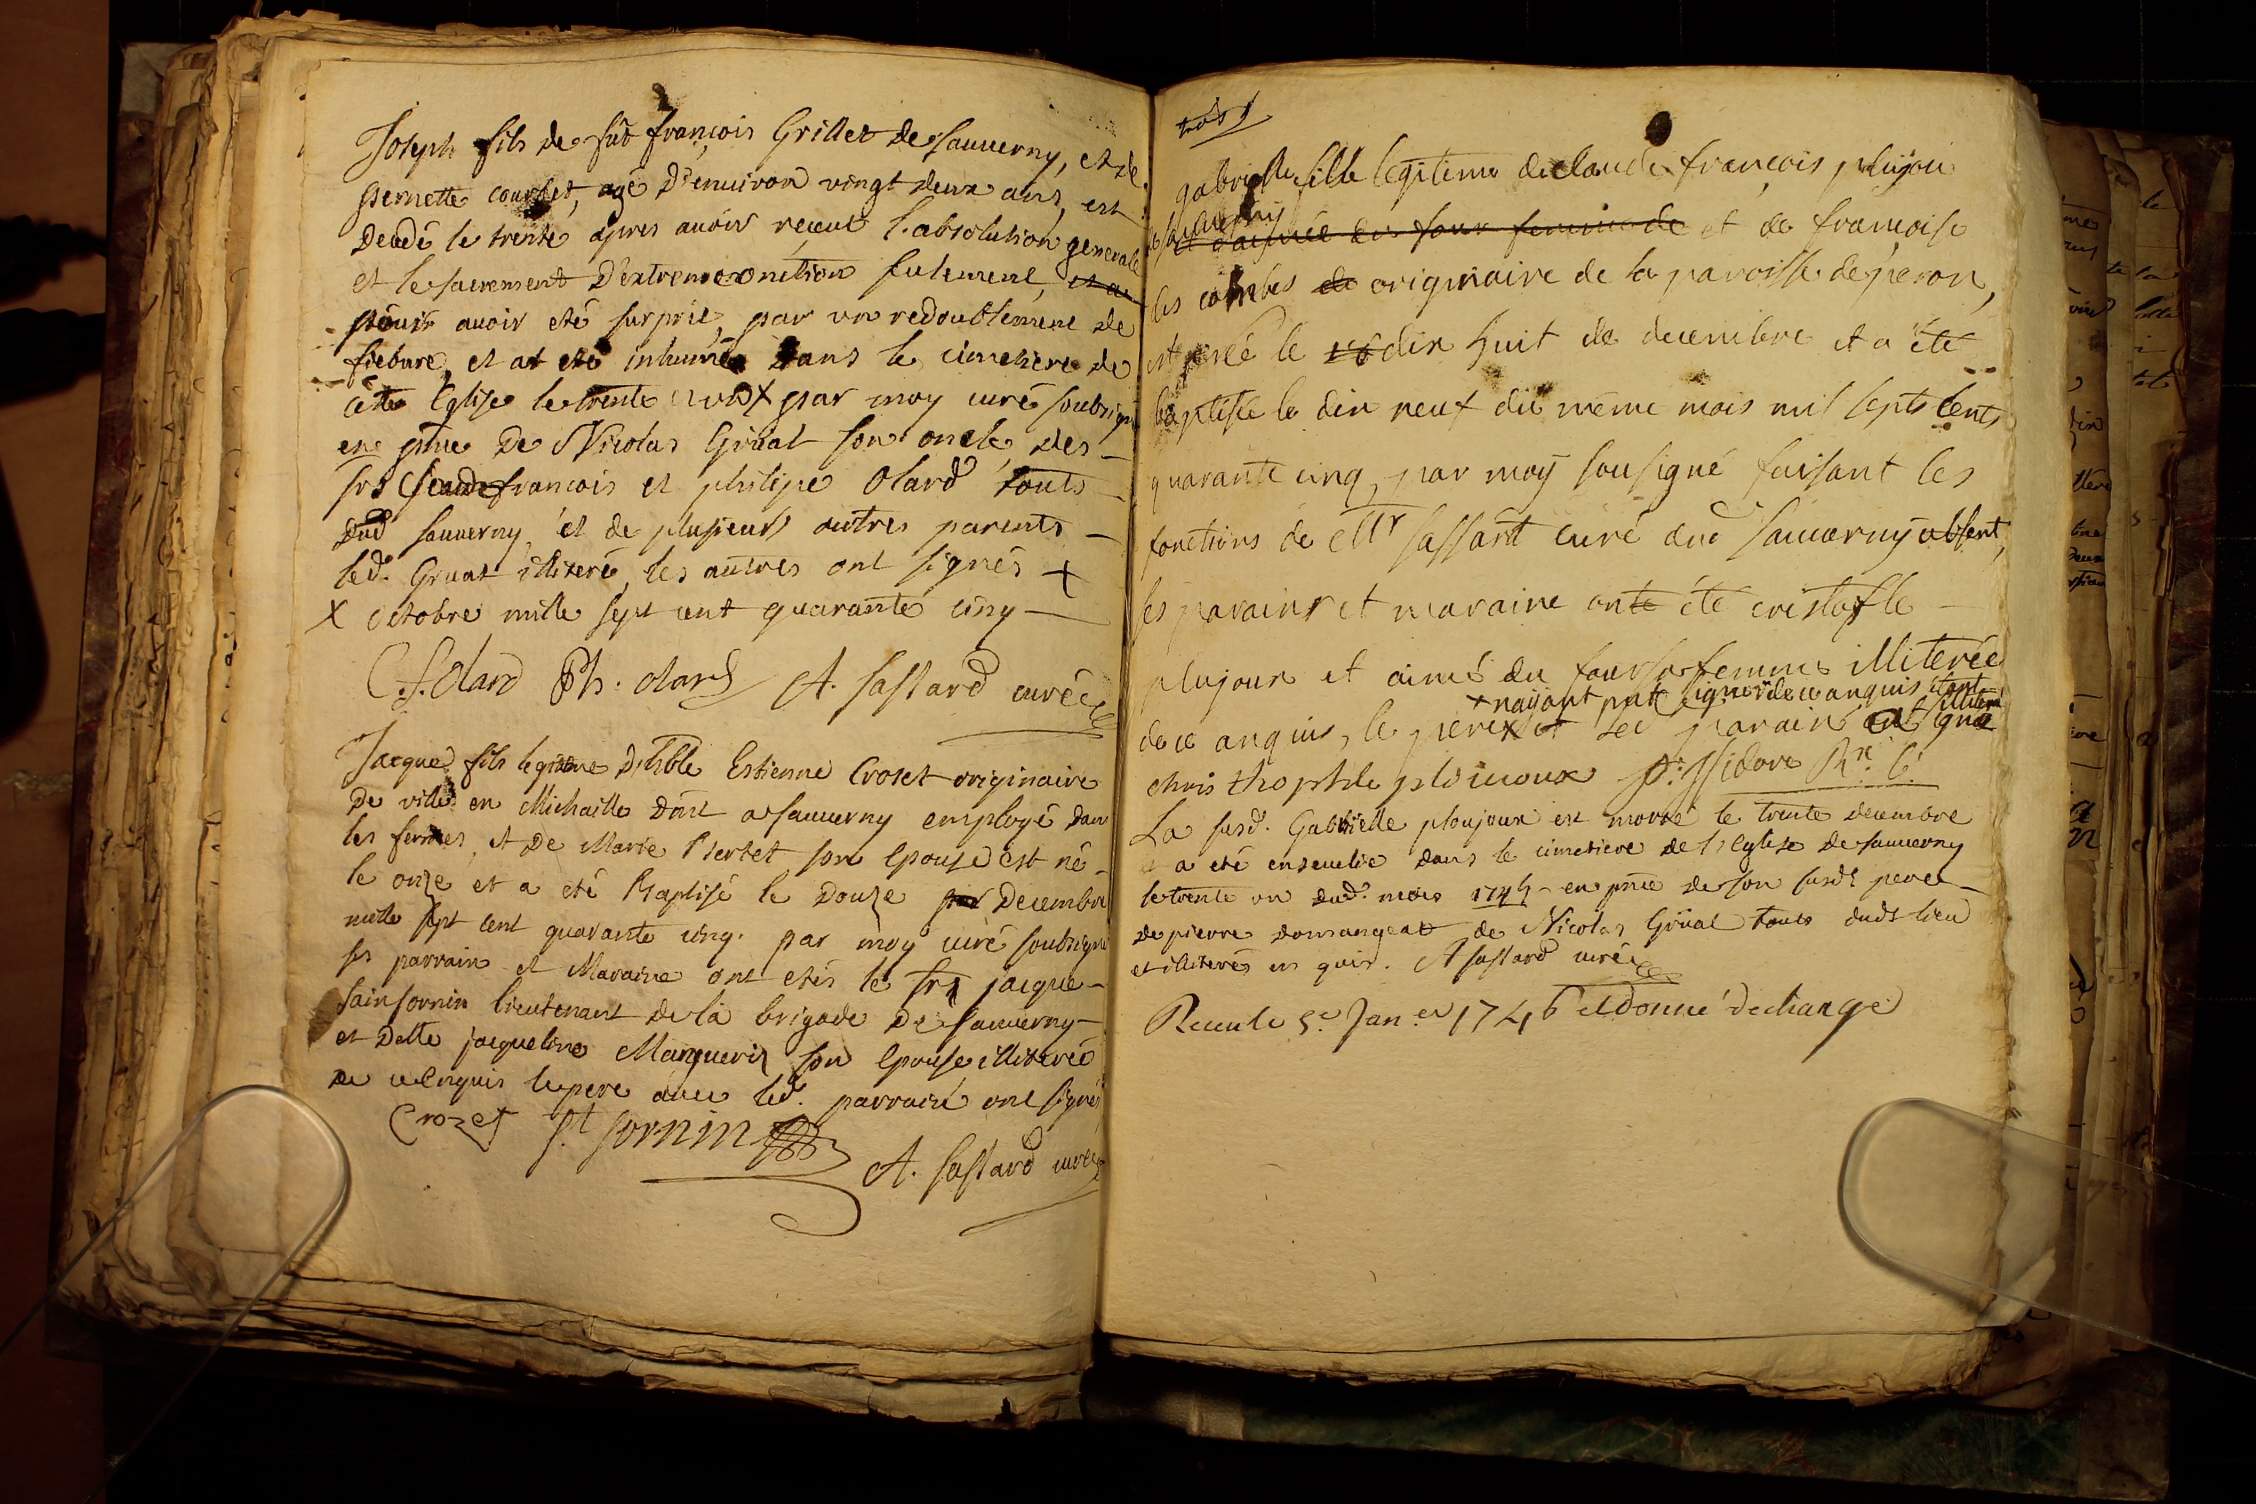 Joseph fils de fût françois Grillet de Sauuerny, et de
pernette courtet, agé D'enuiron vingt deux ans, est
Decedé le trente apres auoir receut l'absolution generale
et le sacrement D'extremeonction sulement, et a
pour auoir eté surprie, par un redoublement de
fiebure, et at eté inhumé Dans le cimetiere de
cette Eglise le trente un X par moy curé soubsigné
en pñce De Nicolas Grüat son oncle, des
srs Claude françois et philipe Olard touts
dud Sauuerny, et de plusieurs autres parents
led. Gruat illiteré, les autres ont signés X
X octobre mille sept cent quarante cinq
C. f. Olard Ph. olard A. Sassard curé
Jacque fils legitime D'hble Estienne Croset originaire
De ville en Michaille Dont a Sauuerny employé dans
les fermes, et De Marie Bertet son Epouse est né
le onze et a eté Baptisé le Douze par Decembre
mille sept cent quarante cinq. par moy curé soubsigné
ses parrain et Maraine ont etés le sr jacque
sainsornin lieutenant de la brigade De Sauuerny
et Delle jacqueline Marguerit son Epouse illiterée
de ce Enquis le pere auec led. parrain ont signés
Crozet St Sornin
A. Sassard curé
gabrielle fille legitime de claude françois plujou
de Sauuerny
et d'aimée du four femme de et de francoise
les combes de originaire de la paroisse de peron,
est née le 18 dix huit de decembre et a été
baptisée le dix neuf du même mois mil septs cents
quarante cinq par moÿ sousigné faisant les
fonctions de Mr Sassard curé dud Sauuerny absent,
ses parains et maraine onte été cristofle
plujoux et aimé du four sa femme illiterée
x nayant put signer de ce anquis étant illiteré
de ce anquis, le pere x et le parain at signé
christhophle ploujoux p. Isidore
La susd. Gabrielle ploujoux est morte le trente decembre
et a eté enseuelie dans le cimetiere de l'Eglise de Sauuerny
le trente un dud. mois 1745 en pñce de son susdt pere
de pierre domangeat de Nicolas Grüat touts dudt lieu
et illiterés en quis. A Sassard curé
Receu le 5e Janer 1746 et donné dechange